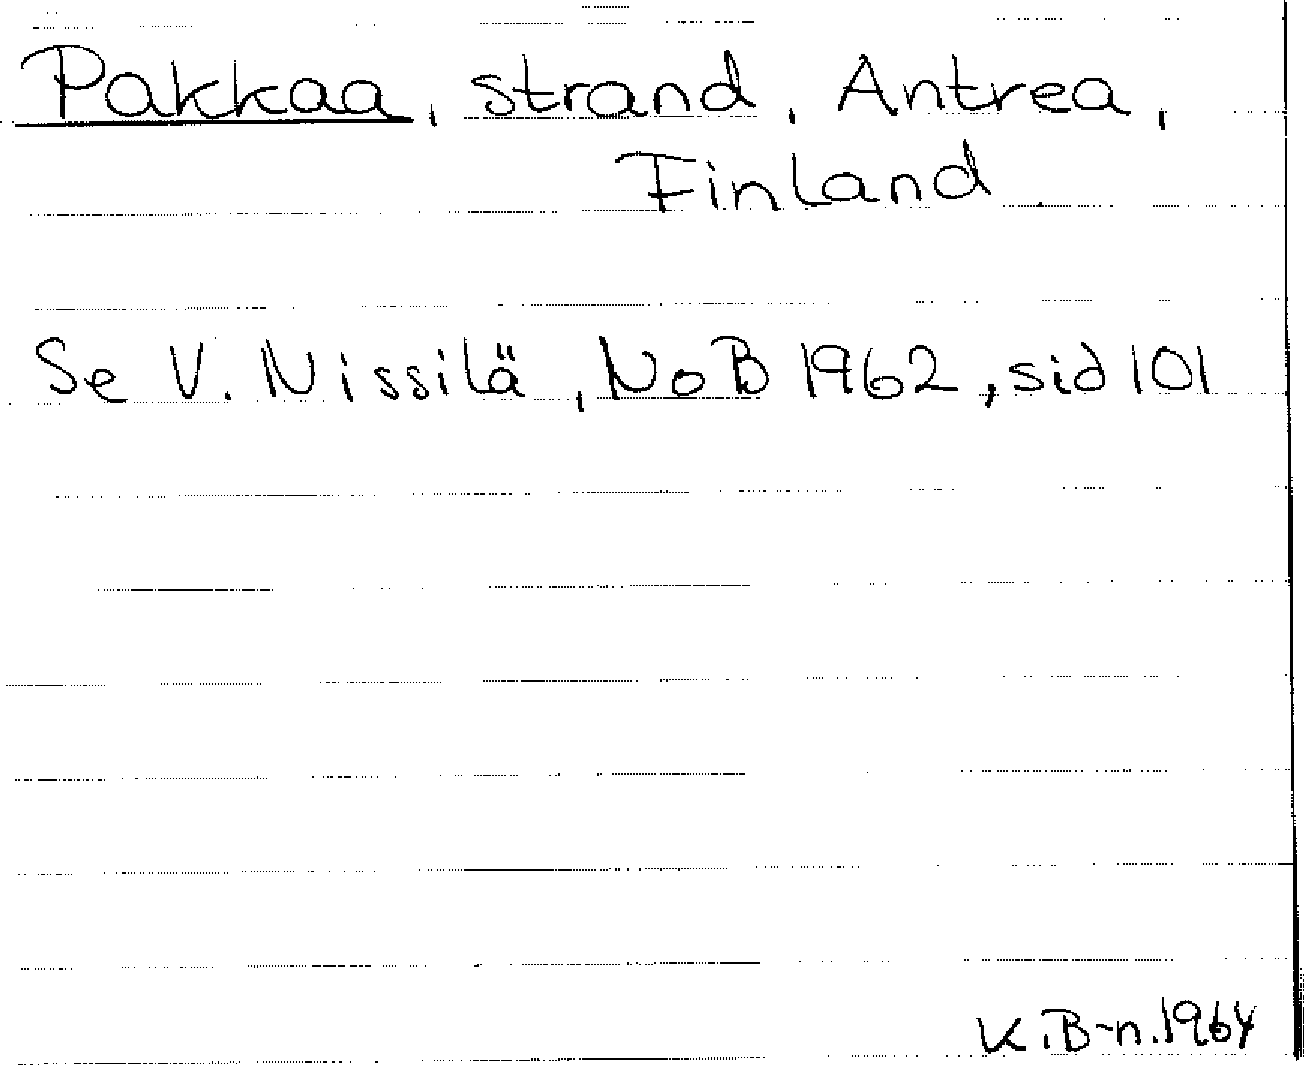 Pakkaa, strand, Antrea,
Finland
Se V. Nissilä, NoB 1962, sid 101
K.B-n.1964